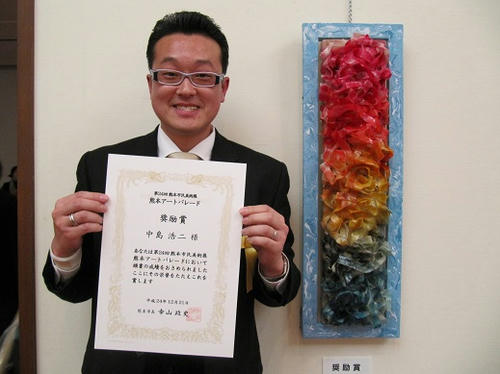 第24回 熊本市民美術展
熊本アートパレード
奨励賞
中島 浩二 様
あなたは第24回熊本市民美術展
熊本アートパレードにおいて
頭書の成績をおさめられました
ここにその栄誉をたたえこれを
賞します
平成24年12月21日
熊本市長 幸山 政史
奨励賞